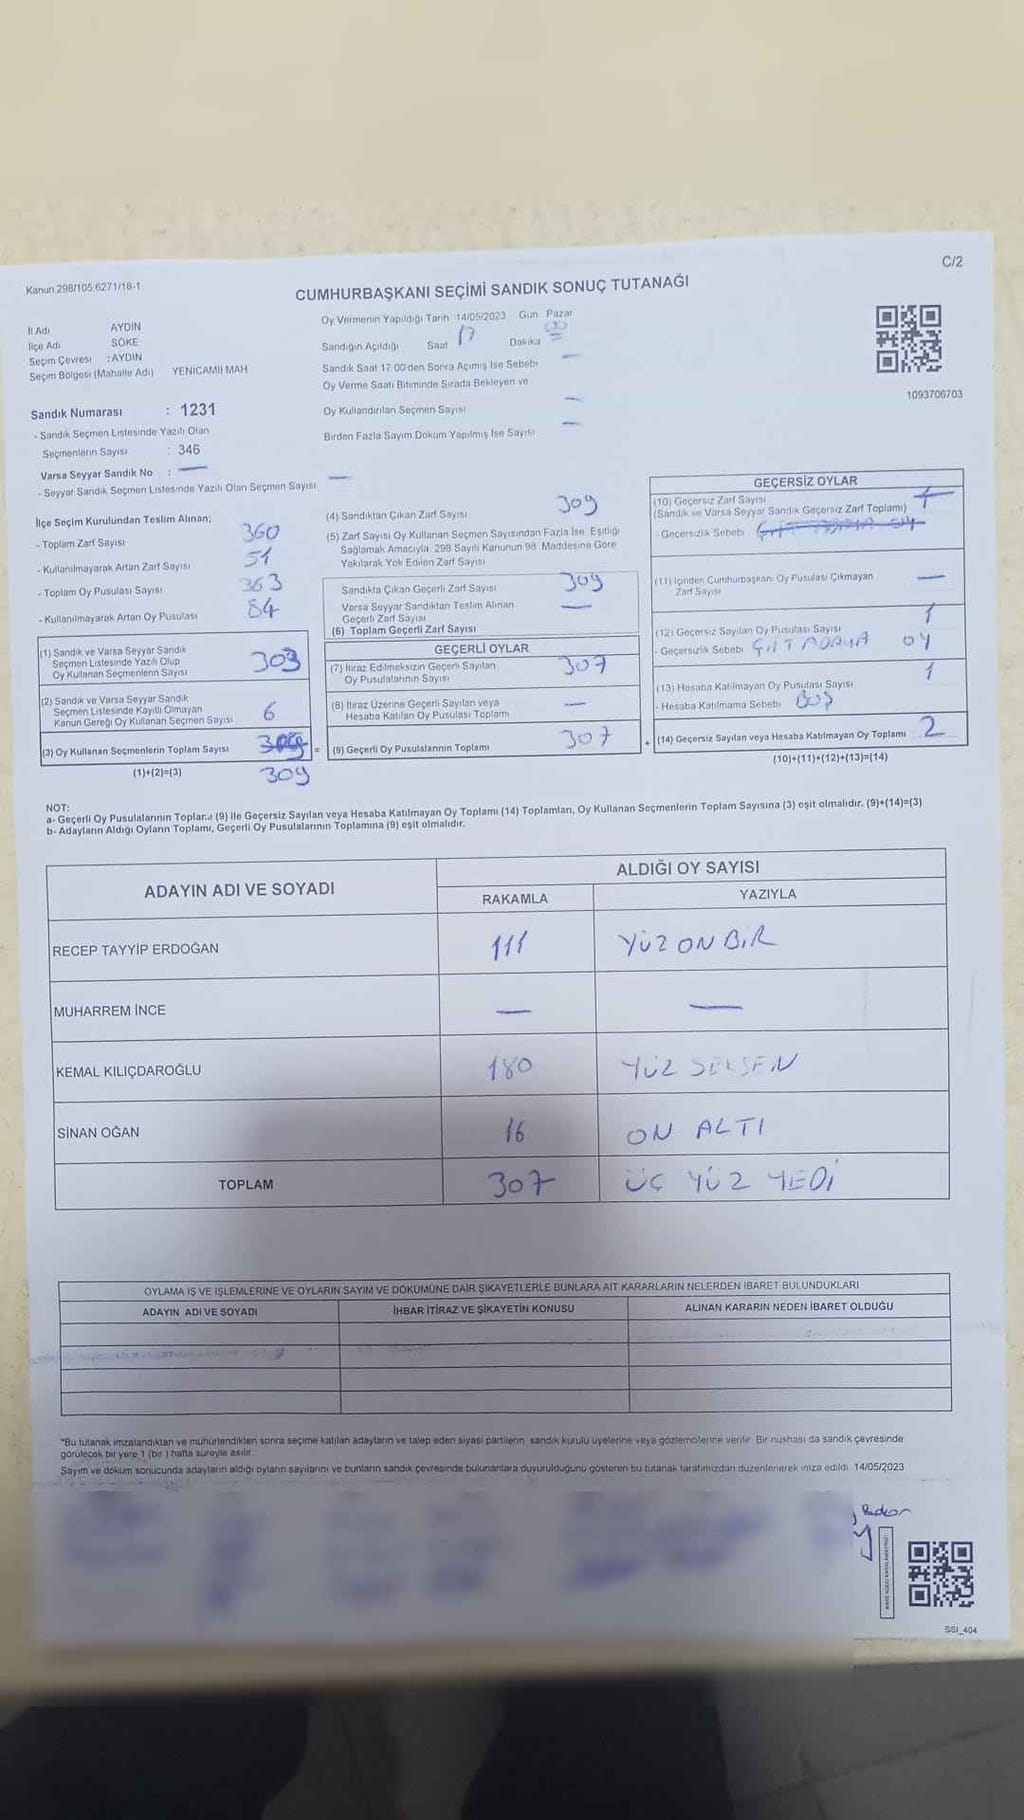 C/2
Kanun 298/105,6271/18-1
CUMHURBAŞKANI SEÇİMİ SANDIK SONUÇ TUTANAĞI
İl Adı AYDIN
İlçe Adı SÖKE
Seçim Çevresi : AYDIN
Seçim Bölgesi (Mahalle Adı) YENİCAMİİ MAH
Sandık Numarası : 1231
- Sandık Seçmen Listesinde Yazılı Olan
Seçmenlerin Sayısı : 346
Varsa Seyyar Sandık No : —
- Seyyar Sandık Seçmen Listesinde Yazılı Olan Seçmen Sayısı —
Oy Vermenin Yapıldığı Tarih 14/05/2023 Gün Pazar
Sandığın Açıldığı Saat 17 Dakika 00
Sandık Saat 17:00'den Sonra Açımış İse Sebebi —
Oy Verme Saati Bitiminde Sırada Bekleyen ve
Oy Kullandırılan Seçmen Sayısı —
Birden Fazla Sayım Döküm Yapılmış İse Sayısı —
1093706703
İlçe Seçim Kurulundan Teslim Alınan;
- Toplam Zarf Sayısı 360
- Kullanılmayarak Artan Zarf Sayısı 51
- Toplam Oy Pusulası Sayısı 363
- Kullanılmayarak Artan Oy Pusulası 54
(1) Sandık ve Varsa Seyyar Sandık
Seçmen Listesinde Yazılı Olup
Oy Kullanan Seçmenlerin Sayısı 303
(2) Sandık ve Varsa Seyyar Sandık
Seçmen Listesinde Kayıtlı Olmayan
Kanun Gereği Oy Kullanan Seçmen Sayısı 6
(3) Oy Kullanan Seçmenlerin Toplam Sayısı
(1)+(2)=(3) 309
(4) Sandıktan Çıkan Zarf Sayısı 309
(5) Zarf Sayısı Oy Kullanan Seçmen Sayısından Fazla İse, Eşitliği
Sağlamak Amacıyla, 298 Sayılı Kanunun 98. Maddesine Göre
Yakılarak Yok Edilen Zarf Sayısı
Sandıkta Çıkan Geçerli Zarf Sayısı 309
Varsa Seyyar Sandıktan Teslim Alınan
Geçerli Zarf Sayısı —
(6) Toplam Geçerli Zarf Sayısı
GEÇERLİ OYLAR
(7) İtiraz Edilmeksizin Geçerli Sayılan
Oy Pusulalarının Sayısı 307
(8) İtiraz Üzerine Geçerli Sayılan veya
Hesaba Katılan Oy Pusulası Toplamı —
= (9) Geçerli Oy Pusulalarının Toplamı 307
GEÇERSİZ OYLAR
(10) Geçersiz Zarf Sayısı 1
(Sandık ve Varsa Seyyar Sandık Geçersiz Zarf Toplamı)
- Geçersizlik Sebebi
(11) İçinden Cumhurbaşkanı Oy Pusulası Çıkmayan
Zarf Sayısı —
(12) Geçersiz Sayılan Oy Pusulası Sayısı 1
- Geçersizlik Sebebi ÇİFT ADAYA OY
(13) Hesaba Katılmayan Oy Pusulası Sayısı 1
- Hesaba Katılmama Sebebi BOŞ
+ (14) Geçersiz Sayılan veya Hesaba Katılmayan Oy Toplamı 2
(10)+(11)+(12)+(13)=(14)
NOT:
a- Geçerli Oy Pusulalarının Toplamı (9) ile Geçersiz Sayılan veya Hesaba Katılmayan Oy Toplamı (14) Toplamları, Oy Kullanan Seçmenlerin Toplam Sayısına (3) eşit olmalıdır. (9)+(14)=(3)
b- Adayların Aldığı Oyların Toplamı, Geçerli Oy Pusulalarının Toplamına (9) eşit olmalıdır.
ADAYIN ADI VE SOYADI
ALDIĞI OY SAYISI
RAKAMLA YAZIYLA
RECEP TAYYİP ERDOĞAN 111 YÜZ ON BİR
MUHARREM İNCE — —
KEMAL KILIÇDAROĞLU 180 YÜZ SEKSEN
SİNAN OĞAN 16 ON ALTI
TOPLAM 307 ÜÇ YÜZ YEDİ
OYLAMA İŞ VE İŞLEMLERİNE VE OYLARIN SAYIM VE DÖKÜMÜNE DAİR ŞİKAYETLERLE BUNLARA AİT KARARLARIN NELERDEN İBARET BULUNDUKLARI
ADAYIN ADI VE SOYADI İHBAR İTİRAZ VE ŞİKAYETİN KONUSU ALINAN KARARIN NEDEN İBARET OLDUĞU
*Bu tutanak imzalandıktan ve mühürlendikten sonra seçime katılan adayların ve talep eden siyasi partilerin sandık kurulu üyelerine veya gözlemcilerine verilir. Bir nüshası da sandık çevresinde
görülecek bir yere 1 (bir ) hafta süreyle asılır.
Sayım ve döküm sonucunda adayların aldığı oyların sayılarını ve bunların sandık çevresinde bulunanlara duyurulduğunu gösteren bu tutanak tarafımızdan düzenlenerek imza edildi. 14/05/2023
SSI_404